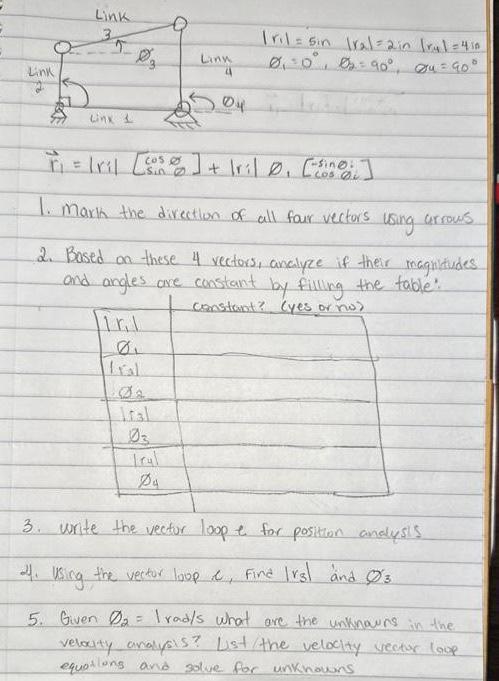 Link
3
|r1| = 5in |r2| = 2in |r4| = 4in
Ø1 = 0°, Ø2 = 90°, Ø4 = 90°
Ø3
Link
4
Link
2
Ø4
Link 1
r⃗i = |ri| [cos Ø sin Ø] + |ri| Ø, [-sin Øi cos Øi]
1. Mark the direction of all four vectors using arrows
2. Based on these 4 vectors, analyze if their magnitudes
and angles are constant by filling the table:
constant? (yes or no)
|r1|
Ø1
|r2|
Ø2
|r3|
Ø3
|r4|
Ø4
3. write the vector loop e for position analysis
4. Using the vector loop e, Find |r3| and Ø3
5. Given Ø2 = 1 rad/s what are the unknowns in the
velocity analysis? List the velocity vector loop
equations and solve for unknowns